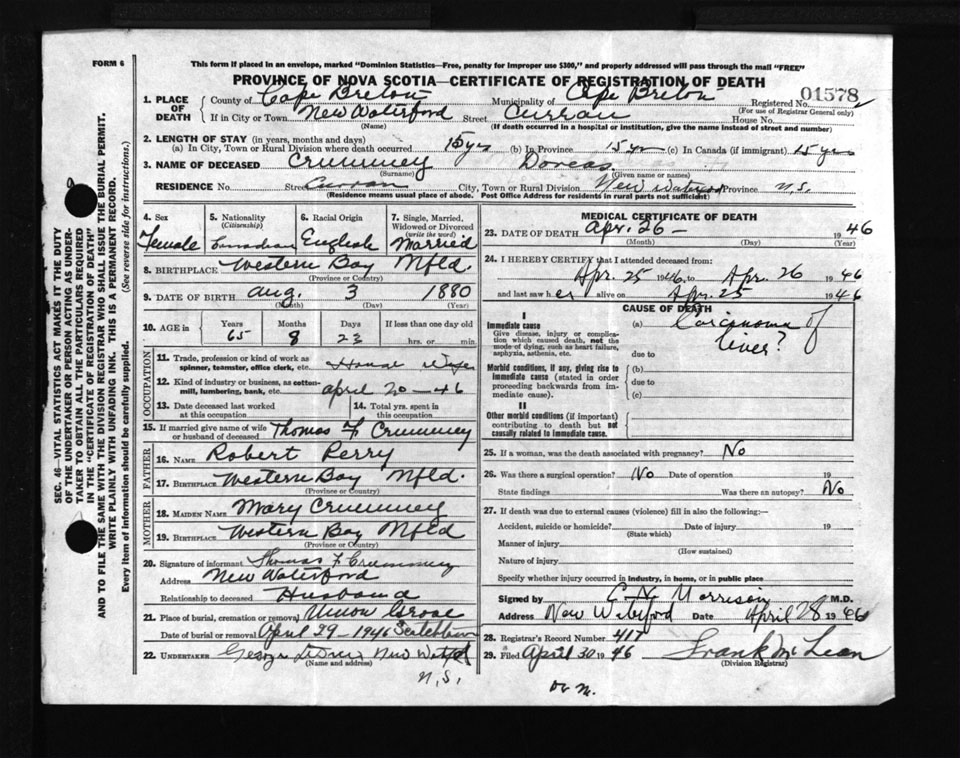 FORM 6
This form if placed in an envelope, marked "Dominion Statistics—Free, penalty for improper use $300," and properly addressed will pass through the mail "FREE"
PROVINCE OF NOVA SCOTIA—CERTIFICATE OF REGISTRATION OF DEATH
01578
1. PLACE OF DEATH
County of Cape Breton Municipality of Cape Breton Registered No.
(For use of Registrar General only)
If in City or Town New Waterford Street Curran House No.
(Name) (If death occurred in a hospital or institution, give the name instead of street and number)
2. LENGTH OF STAY (in years, months and days)
(a) In City, Town or Rural Division where death occurred 15 yrs (b) In Province 15 yr (c) In Canada (if immigrant) 15 yrs
3. NAME OF DECEASED Crummey Dorcas
(Surname) (Given name or names)
RESIDENCE No. Street Curran City, Town or Rural Division New Waterford Province N.S.
(Residence means usual place of abode. Post Office Address for residents in rural parts not sufficient)
4. Sex Female
5. Nationality (Citizenship) Canadian
6. Racial Origin English
7. Single, Married, Widowed or Divorced (write the word) Married
8. BIRTHPLACE Western Bay Nfld.
(Province or Country)
9. DATE OF BIRTH Aug. 3 1880
(Month) (Day) (Year)
10. AGE in Years Months Days If less than one day old
65 8 23 hrs. or min.
OCCUPATION
11. Trade, profession or kind of work as spinner, teamster, office clerk, etc. House Wife
12. Kind of industry or business, as cotton-mill, lumbering, bank, etc. April 20 - 46
13. Date deceased last worked at this occupation
14. Total yrs. spent in this occupation
15. If married give name of wife or husband of deceased Thomas F Crummey
FATHER
16. NAME Robert Perry
17. BIRTHPLACE Western Bay Nfld.
(Province or Country)
MOTHER
18. MAIDEN NAME Mary Crummey
19. BIRTHPLACE Western Bay Nfld
(Province or Country)
20. Signature of informant Thomas F Crummey
Address New Waterford
Relationship to deceased Husband
21. Place of burial, cremation or removal Union Grove
Date of burial or removal April 29 - 1946 Scotchtown
22. UNDERTAKER George New Watfd
(Name and address)
N.S.
MEDICAL CERTIFICATE OF DEATH
23. DATE OF DEATH Apr. 26 - 1946
(Month) (Day) (Year)
24. I HEREBY CERTIFY that I attended deceased from:
Apr. 25 1946 to Apr. 26 1946
and last saw her alive on Apr. 25 1946
CAUSE OF DEATH
I
Immediate cause
Give disease, injury or complication which caused death, not the mode of dying, such as heart failure, asphyxia, asthenia, etc.
(a) Carcinoma of liver?
due to
Morbid conditions, if any, giving rise to immediate cause (stated in order proceeding backwards from immediate cause).
(b)
due to
(c)
II
Other morbid conditions (if important) contributing to death but not causally related to immediate cause.
25. If a woman, was the death associated with pregnancy? No
26. Was there a surgical operation? No Date of operation 19
State findings Was there an autopsy? No
27. If death was due to external causes (violence) fill in also the following:—
Accident, suicide or homicide? Date of injury 19
(State which)
Manner of injury
(How sustained)
Nature of injury
Specify whether injury occurred in industry, in home, or in public place
Signed by C N Morrison M.D.
Address New Waterford Date April 28 1946
28. Registrar's Record Number 417
29. Filed April 30 1946 Frank McLean
(Division Registrar)
SEC. 46—VITAL STATISTICS ACT MAKES IT THE DUTY
OF THE UNDERTAKER OR PERSON ACTING AS UNDER-
TAKER TO OBTAIN ALL THE PARTICULARS REQUIRED
IN THE "CERTIFICATE OF REGISTRATION OF DEATH"
AND TO FILE THE SAME WITH THE DIVISION REGISTRAR WHO SHALL ISSUE THE BURIAL PERMIT.
WRITE PLAINLY WITH UNFADING INK. THIS IS A PERMANENT RECORD.
Every item of information should be carefully supplied. (See reverse side for instructions.)